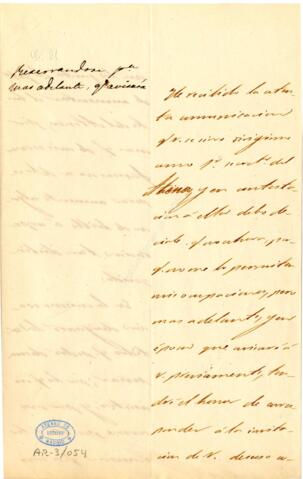 Reservandose pª
mas adelante, q. avisará
He recibido la aten-
ta comunicacion
q. se sirve dirigirme
como Sº del
Ateneo, y en contesta-
cion á ella debo de-
cirle q. ahora,
q. no me lo permiten
mis ocupaciones, pero
mas adelante, y en
época que avisaré á
V. previamente, ten-
dré el honor de corres-
ponder á la invita-
cion de V. deseoso
ATENEO DE
MADRID
AR-3/054